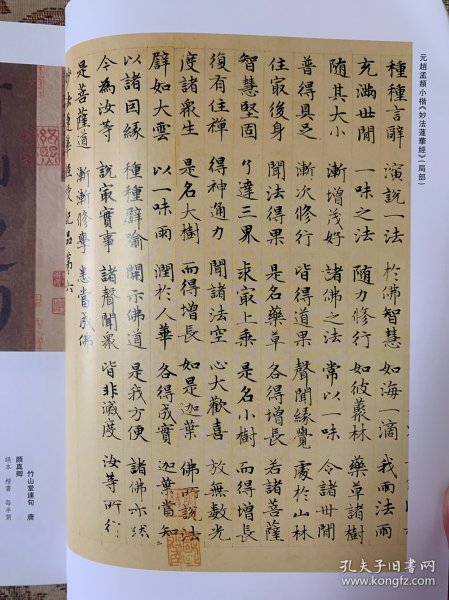 元趙孟頫小楷《妙法蓮華經》（局部）
種種言辭 演說一法 於佛智慧 如海一滴 我雨法雨
充滿世間 一味之法 隨力修行 如彼叢林 藥草諸樹
隨其大小 漸增茂好 諸佛之法 常以一味 令諸世間
普得具足 漸次修行 皆得道果 聲聞緣覺 處於山林
住冣後身 聞法得果 是名藥草 各得增長 若諸菩薩
智慧堅固 了達三界 求冣上乘 是名小樹 而得增長
復有住禪 得神通力 聞諸法空 心大歡喜 放無數光
度諸眾生 是名大樹 而得增長 如是迦葉 佛所說法
譬如大雲 以一味雨 潤於人華 各得成實 迦葉當知
以諸因緣 種種譬喻 開示佛道 是我方便 諸佛亦然
今為汝等 說冣實事 諸聲聞眾 皆非滅度 汝等所行
是菩薩道 漸漸修學 悉當成佛
妙法蓮華經授記品第六
竹山堂連句 唐
顏真卿
絹本 楷書 每半開
孔夫子旧书网